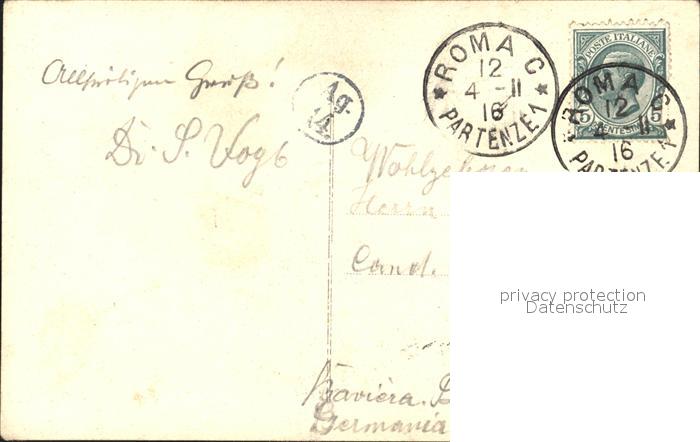 Gruß!
Dr. S. Vogt
Ag.
14.
ROMA C
12
4 - II
16
PARTENZE 1
POSTE ITALIANE
5 5
CENTESIMI
ROMA C
12
4 - II
16
PARTENZE 1
Wohlgeboren
Herrn
Cand.
privacy protection
Datenschutz
Baviera.
Germania